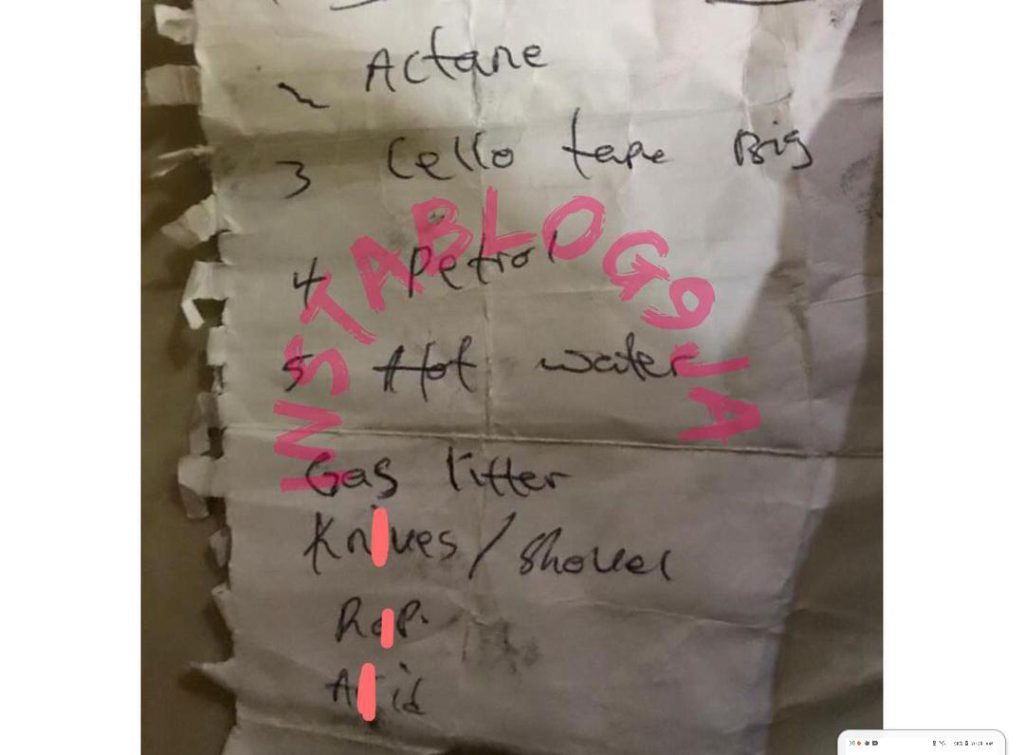 2 Actane
3 Cello tape Big
4 Petrol
5 Hot water
Gas litter
Knives / Shovel
Acid
INSTABLOG9JA